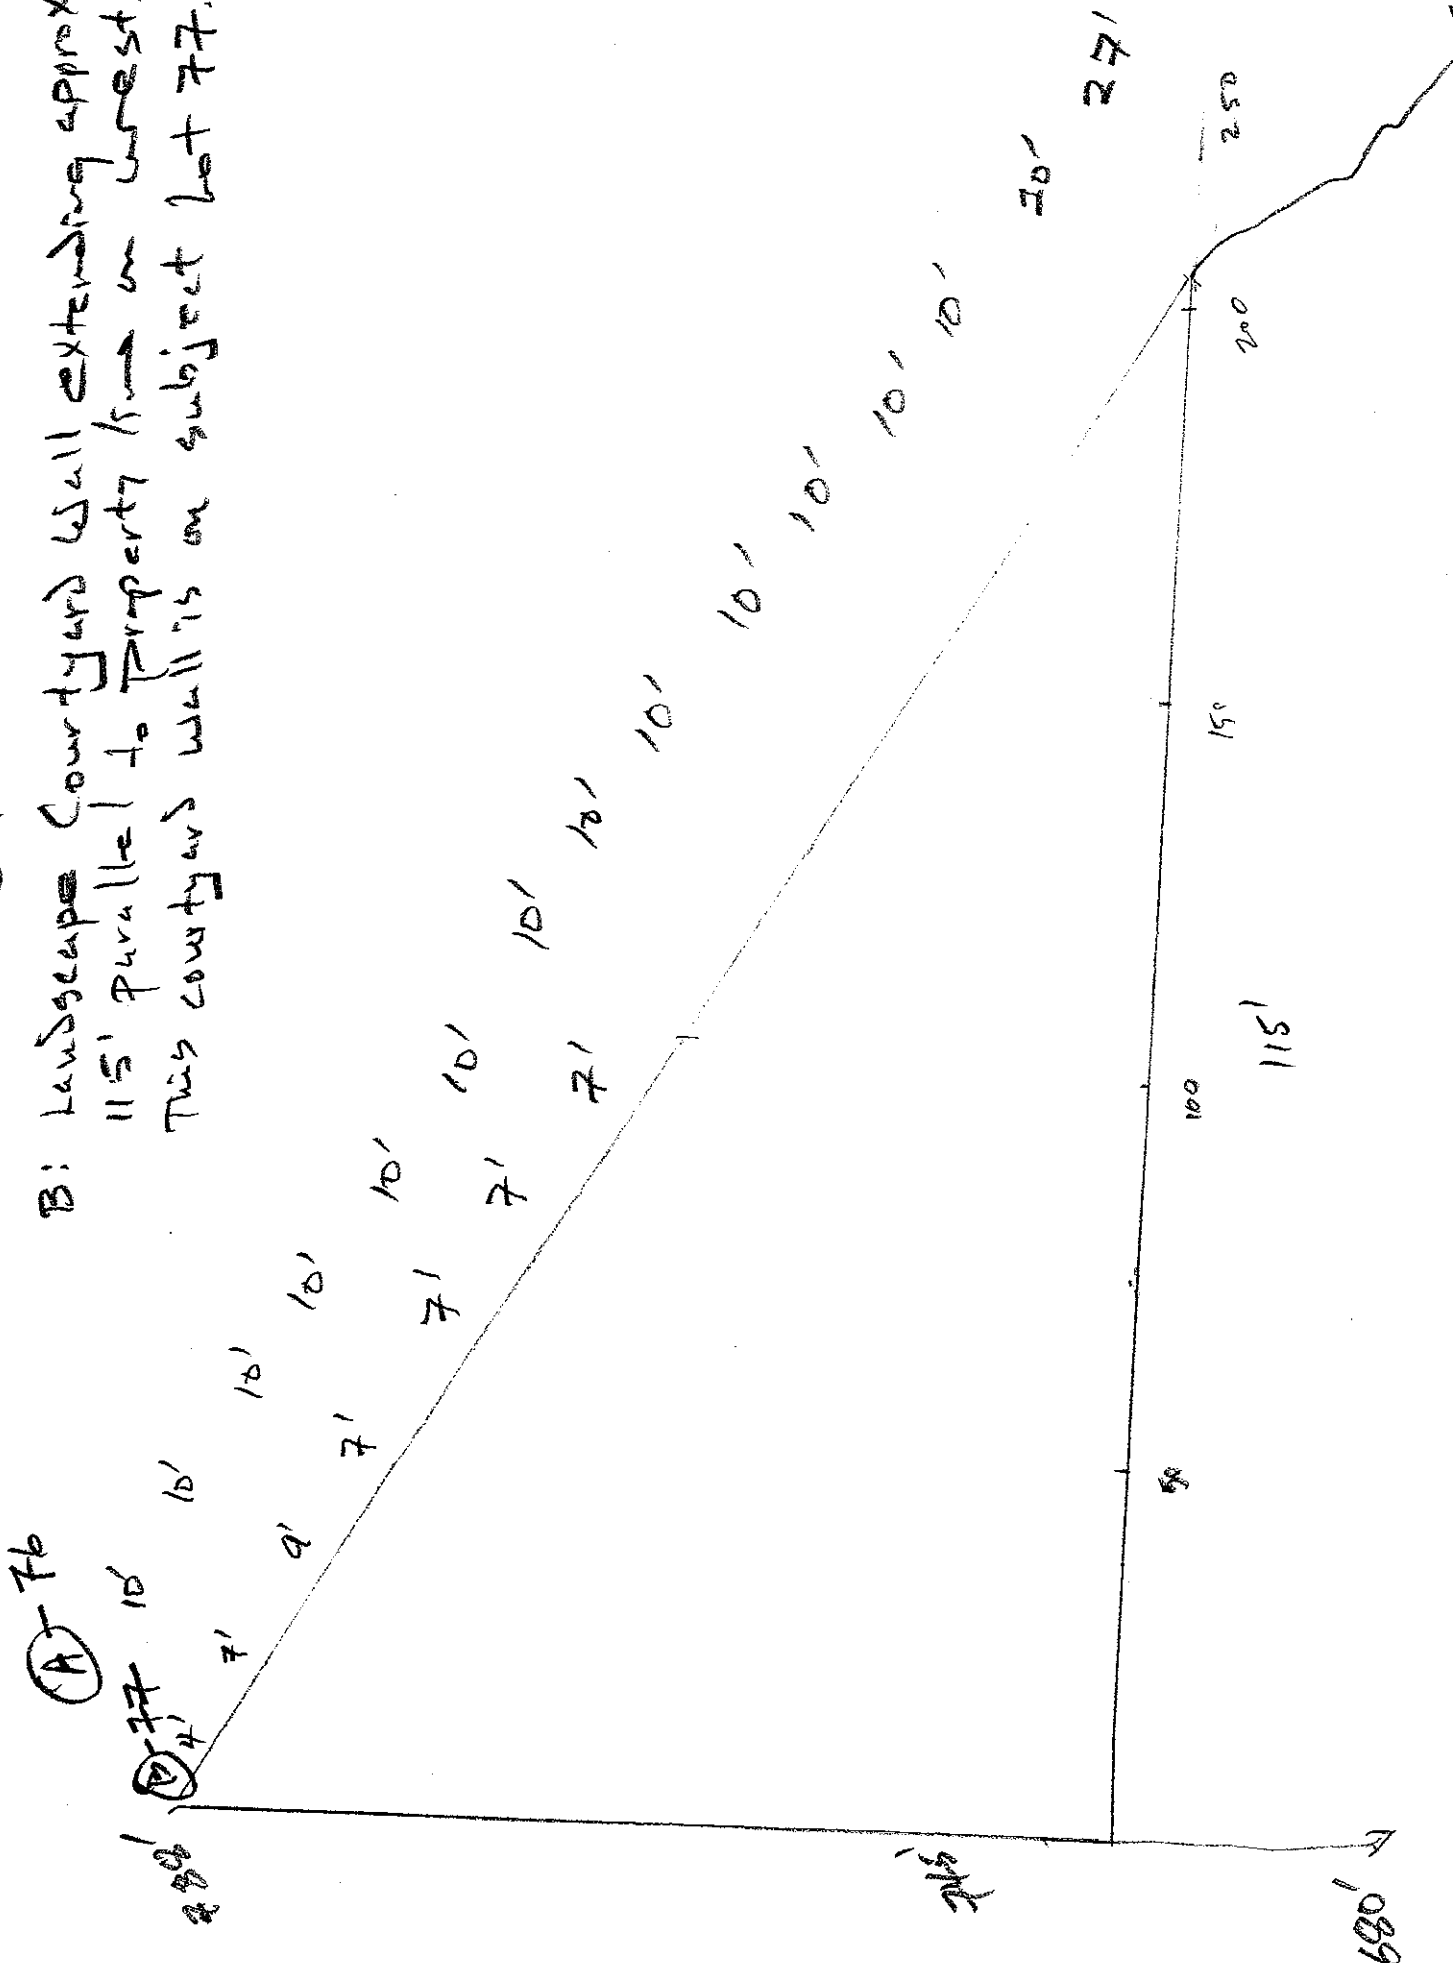 B: Landscape Courtyard Wall extending approx
115' parallel to Property line on west
This courtyard wall is on subject Lot 77.
A - 76
B - 77
10'
10'
10'
10'
10'
10'
10'
10'
10'
10'
10'
10'
10'
10'
4'
7'
9'
7'
7'
7'
7'
27'
50
100
150
200
250
115'
680'